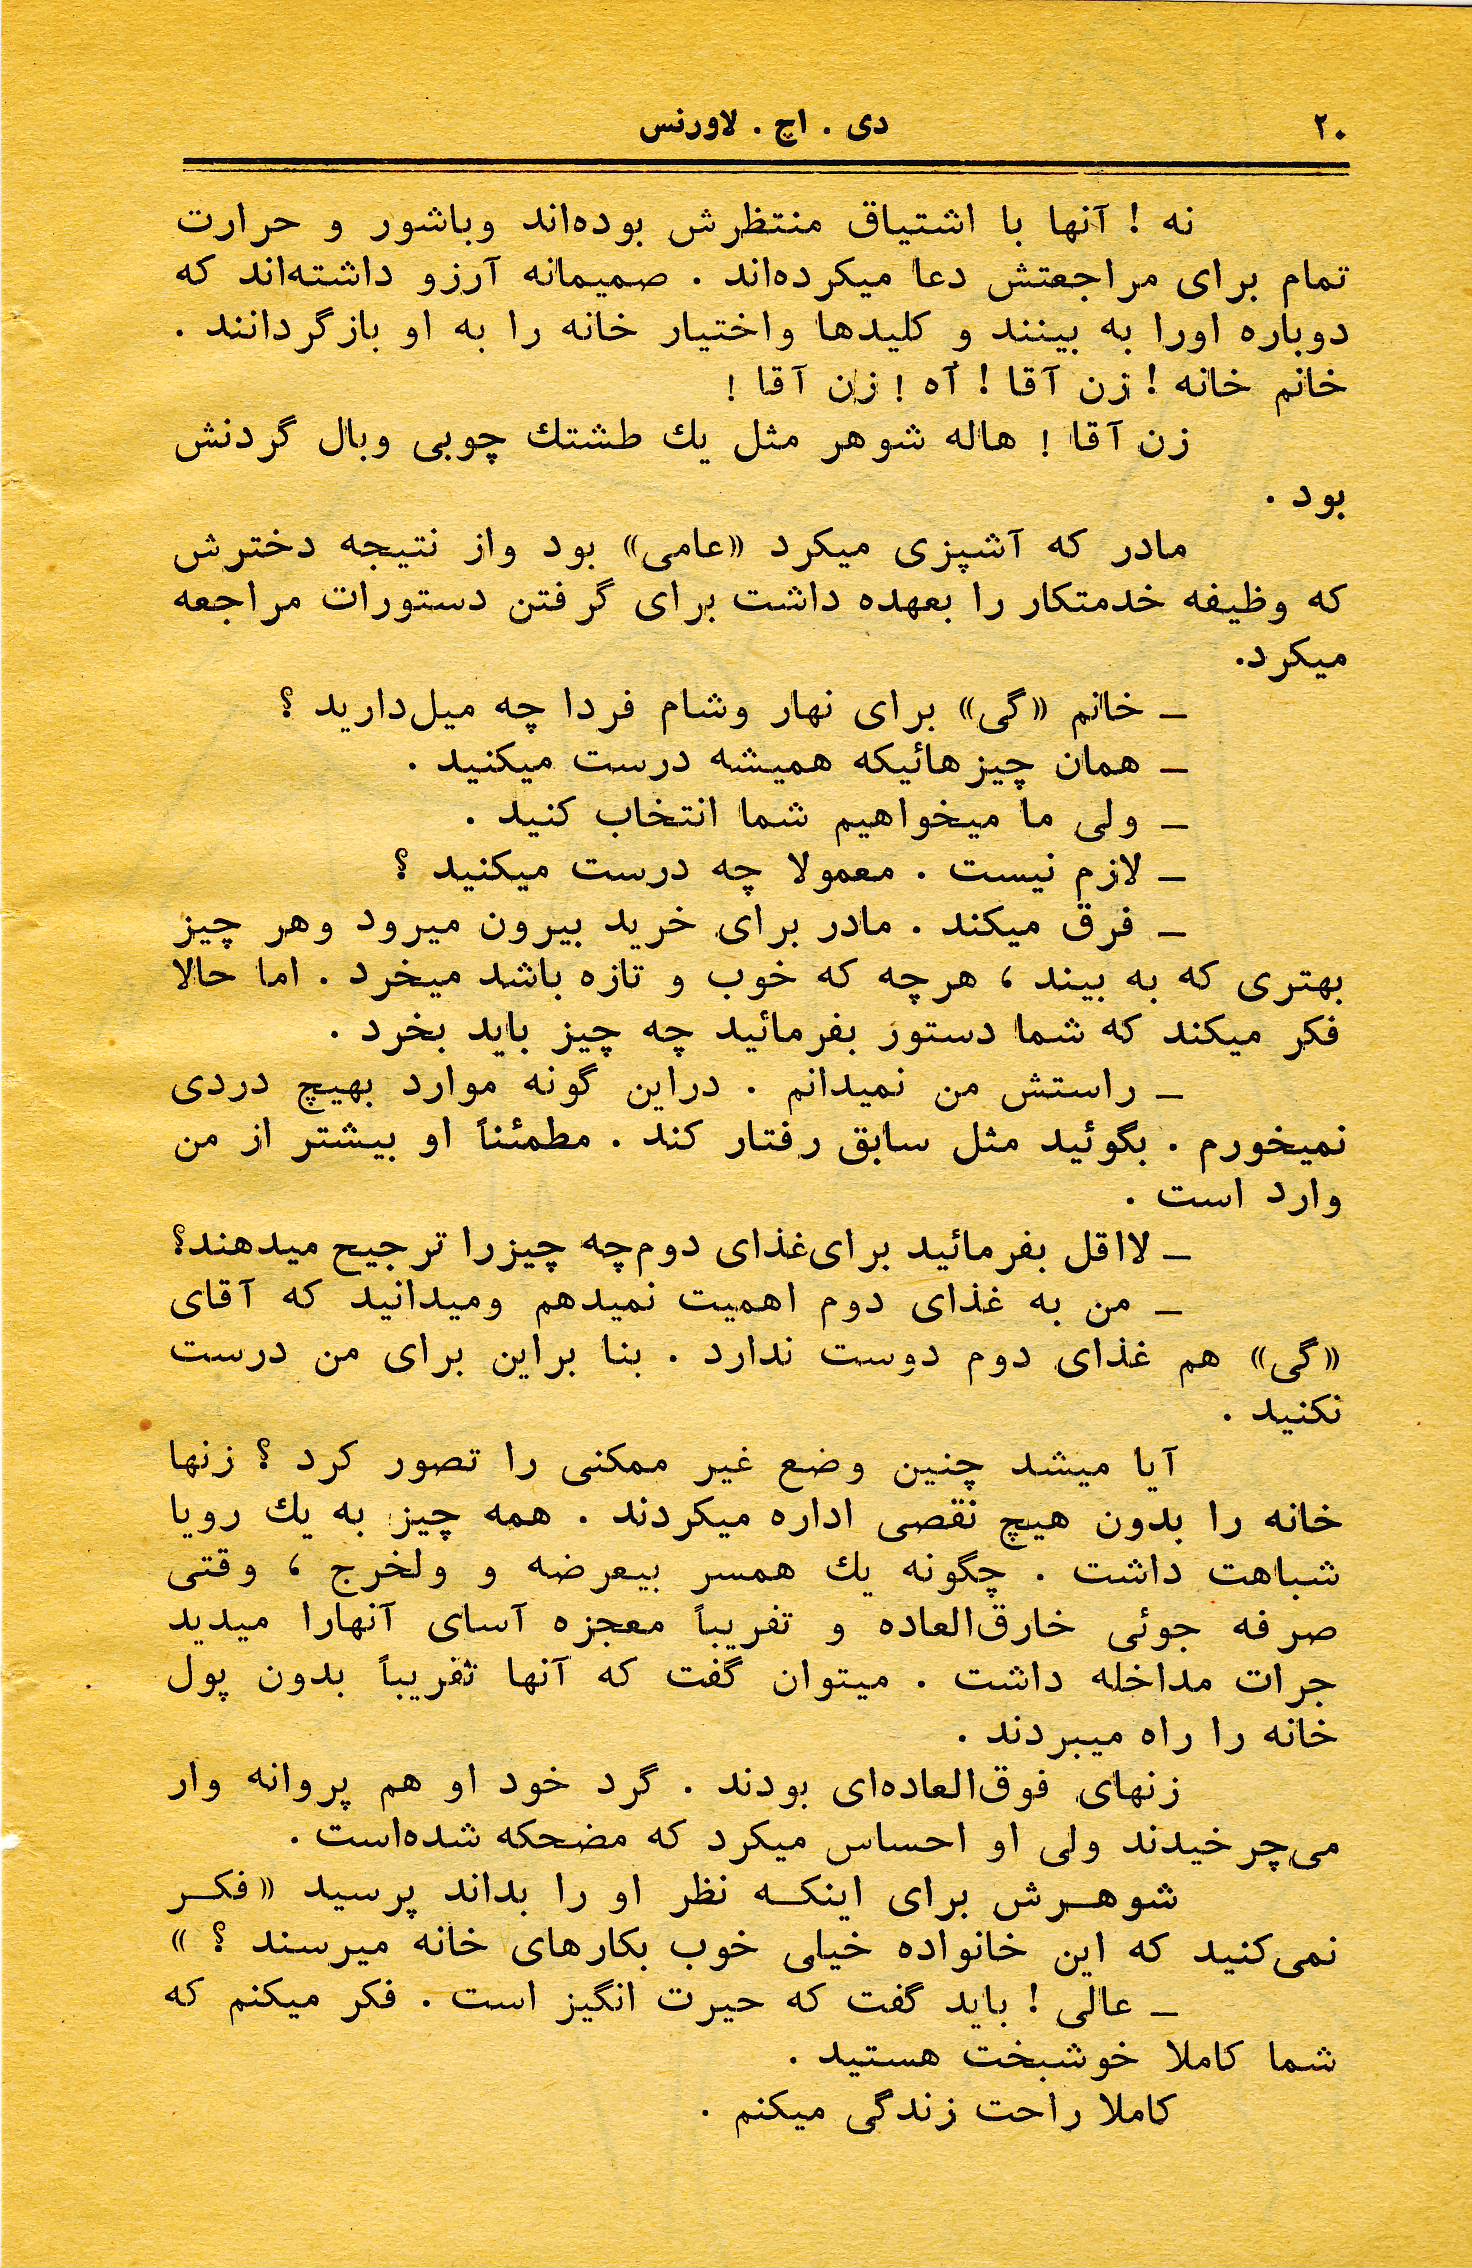 ۲۰
دی . اچ . لاورنس
نه ! آنها با اشتیاق منتظرش بوده‌اند وباشور و حرارت
تمام برای مراجعتش دعا میکرده‌اند . صمیمانه آرزو داشته‌اند که
دوباره اورا به بینند و کلیدها واختیار خانه را به او بازگردانند .
خانم خانه ! زن آقا ! آه ! زن آقا !
زن آقا ! هاله شوهر مثل یك طشتك چوبی وبال گردنش
بود .
مادر که آشپزی میکرد «عامی» بود واز نتیجه دخترش
که وظیفه خدمتکار را بعهده داشت برای گرفتن دستورات مراجعه
میکرد.
ــ خانم «گی» برای نهار وشام فردا چه میل‌دارید ؟
ــ همان چیزهائیکه همیشه درست میکنید .
ــ ولی ما میخواهیم شما انتخاب کنید .
ــ لازم نیست . معمولا چه درست میکنید ؟
ــ فرق میکند . مادر برای خرید بیرون میرود وهر چیز
بهتری که به بیند ، هرچه که خوب و تازه باشد میخرد . اما حالا
فکر میکند که شما دستور بفرمائید چه چیز باید بخرد .
ــ راستش من نمیدانم . دراین گونه موارد بهیچ دردی
نمیخورم . بگوئید مثل سابق رفتار کند . مطمئناً او بیشتر از من
وارد است .
ــ لااقل بفرمائید برای‌غذای دوم‌چه چیزرا ترجیح میدهند؟
ــ من به غذای دوم اهمیت نمیدهم ومیدانید که آقای
«گی» هم غذای دوم دوست ندارد . بنا براین برای من درست
نکنید .
آیا میشد چنین وضع غیر ممکنی را تصور کرد ؟ زنها
خانه را بدون هیچ نقصی اداره میکردند . همه چیز به یك رویا
شباهت داشت . چگونه یك همسر بیعرضه و ولخرج ، وقتی
صرفه جوئی خارق‌العاده و تفریباً معجزه آسای آنهارا میدید
جرات مداخله داشت . میتوان گفت که آنها تفریباً بدون پول
خانه را راه میبردند .
زنهای فوق‌العاده‌ای بودند . گرد خود او هم پروانه وار
می‌چرخیدند ولی او احساس میکرد که مضحکه شده‌است .
شوهــرش برای اینکــه نظر او را بداند پرسید «فکــر
نمی‌کنید که این خانواده خیلی خوب بکارهای خانه میرسند ؟ »
ــ عالی ! باید گفت که حیرت انگیز است . فکر میکنم که
شما کاملا خوشبخت هستید .
کاملا راحت زندگی میکنم .